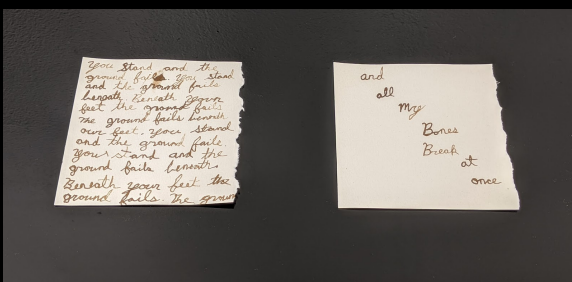 You stand and the
ground fails. You stand
and the ground fails
beneath. Beneath your
feet the ground fails.
The ground fails beneath
our feet. you, stand
and the ground fails.
Your stand and the
ground fails beneath
Beneath your feet the
ground fails. The ground
and
all
My
Bones
Break
at
once